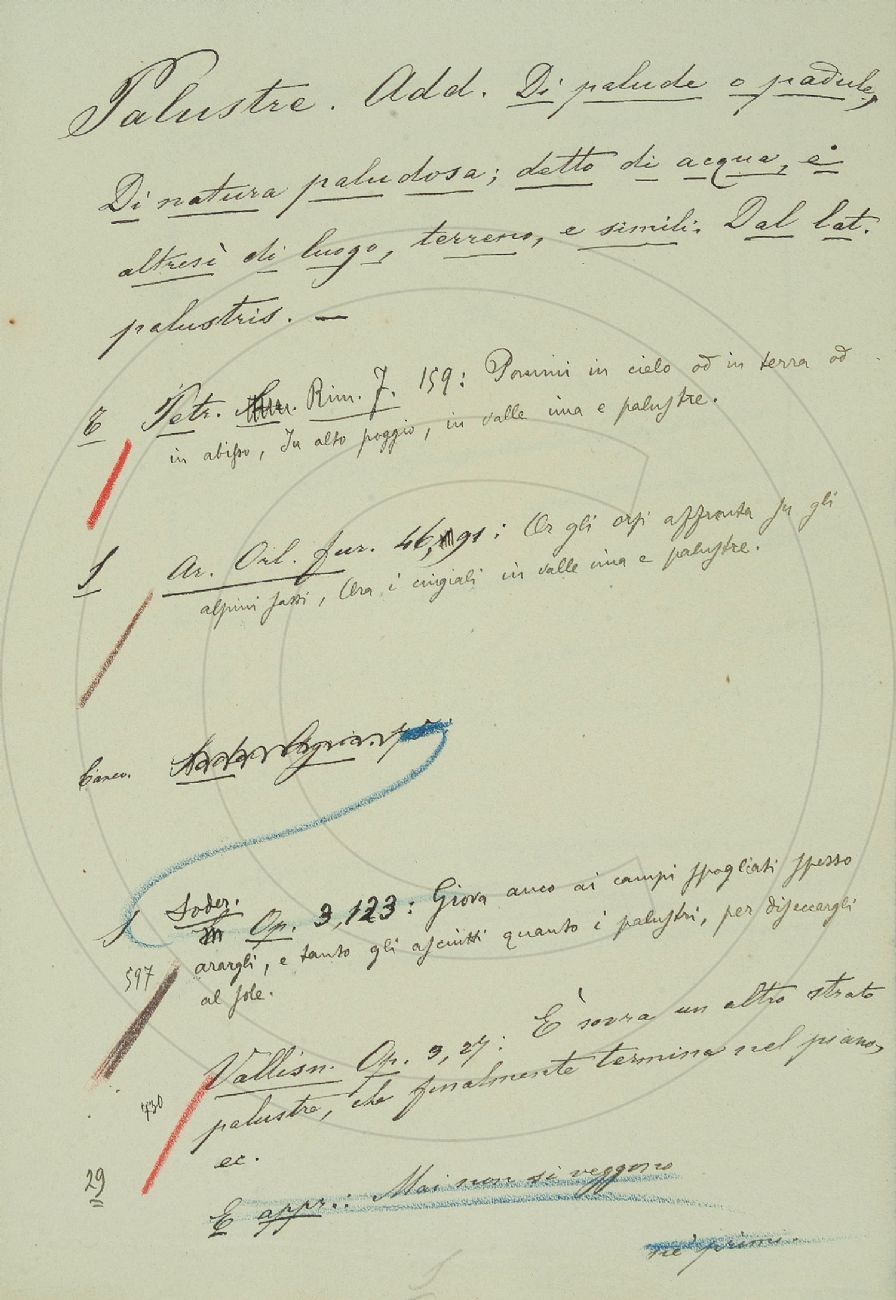 Palustre. Add. Di palude o padule,
Di natura paludosa; detto di acqua, e
altresì di luogo, terreno, e simili. Dal lat.
palustris. —
Petr. Rim. 7. 159: Pommi in cielo od in terra od
in abisso, In alto poggio, in valle ima e palustre.
Ar. Orl. fur. 46, 91: Or gli orsi affronta su gli
alpini sassi, Ora i cingiali in valle ima e palustre.
Soder.
Op. 3, 123: Giova anco ai campi spogliati spesso
597 arargli, e tanto gli asciutti quanto i palustri, per diseccargli
al sole.
Vallisn. Op. 3, 27: È sovra un altro strato
730 palustre, che finalmente termina nel piano,
ec.
29 E appr.: Mai non si veggono
nè primi.